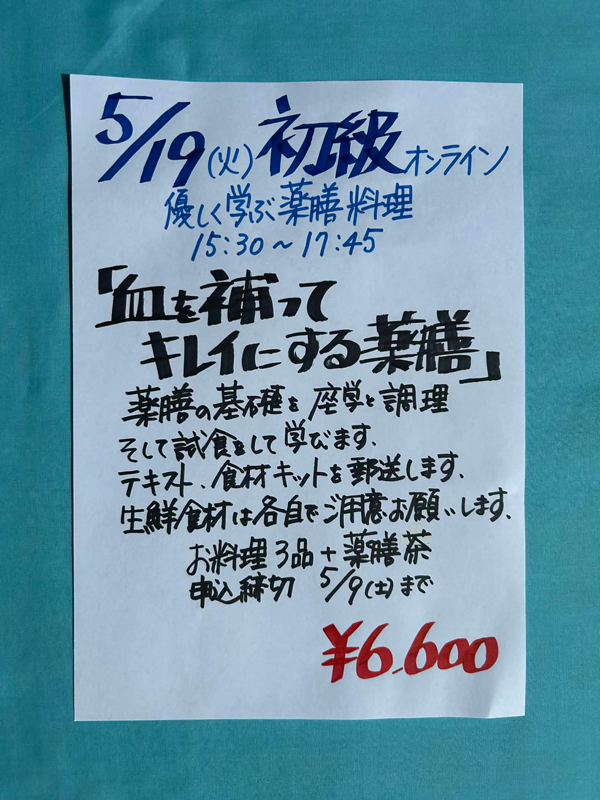 5/19(火)初級オンライン
優しく学ぶ薬膳料理
15:30〜17:45
「血を補って
キレイにする薬膳」
薬膳の基礎を座学と調理
そして試食をして学びます、
テキスト、食材キットを郵送します、
生鮮食材は各自でご用意お願いします、
お料理3品+薬膳茶
申込締切 5/9(土)まで
¥6,600